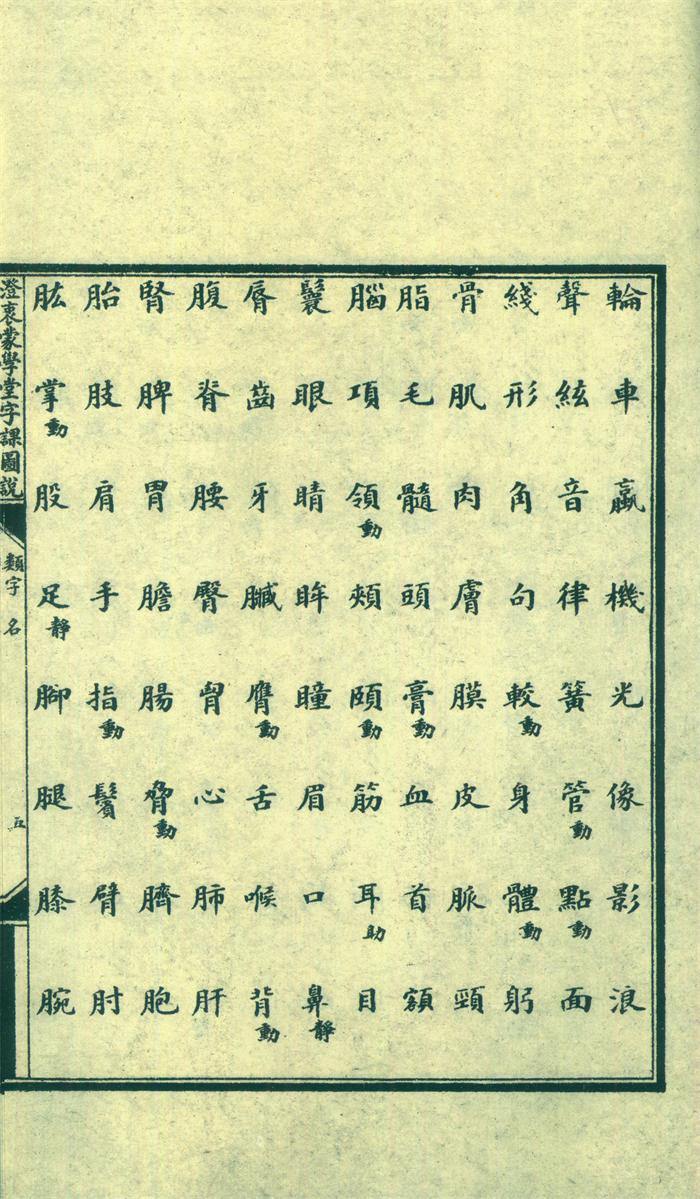 輪車蠃機光像影浪
聲絃音律簧管動點動面
綫形角句較動身體動躬
骨肌肉膚膜皮脈頸
脂毛髓頭膏動血首額
腦項領動頰頤動筋耳助目
鬟眼睛眸瞳眉口鼻靜
脣齒牙臟膺動舌喉背動
腹脊腰臀胷心肺肝
腎脾胃膽腸脅動臍胞
胎肢肩手指動鬢臂肘
肱掌動股足靜腳腿膝腕
澄衷蒙學堂字課圖說
類字 名 五